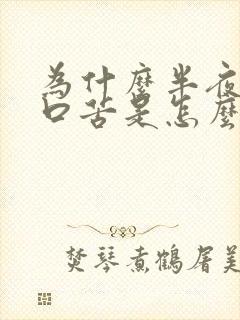 為什麼半夜
口苦是怎麼
焚琴煮鶴屠美